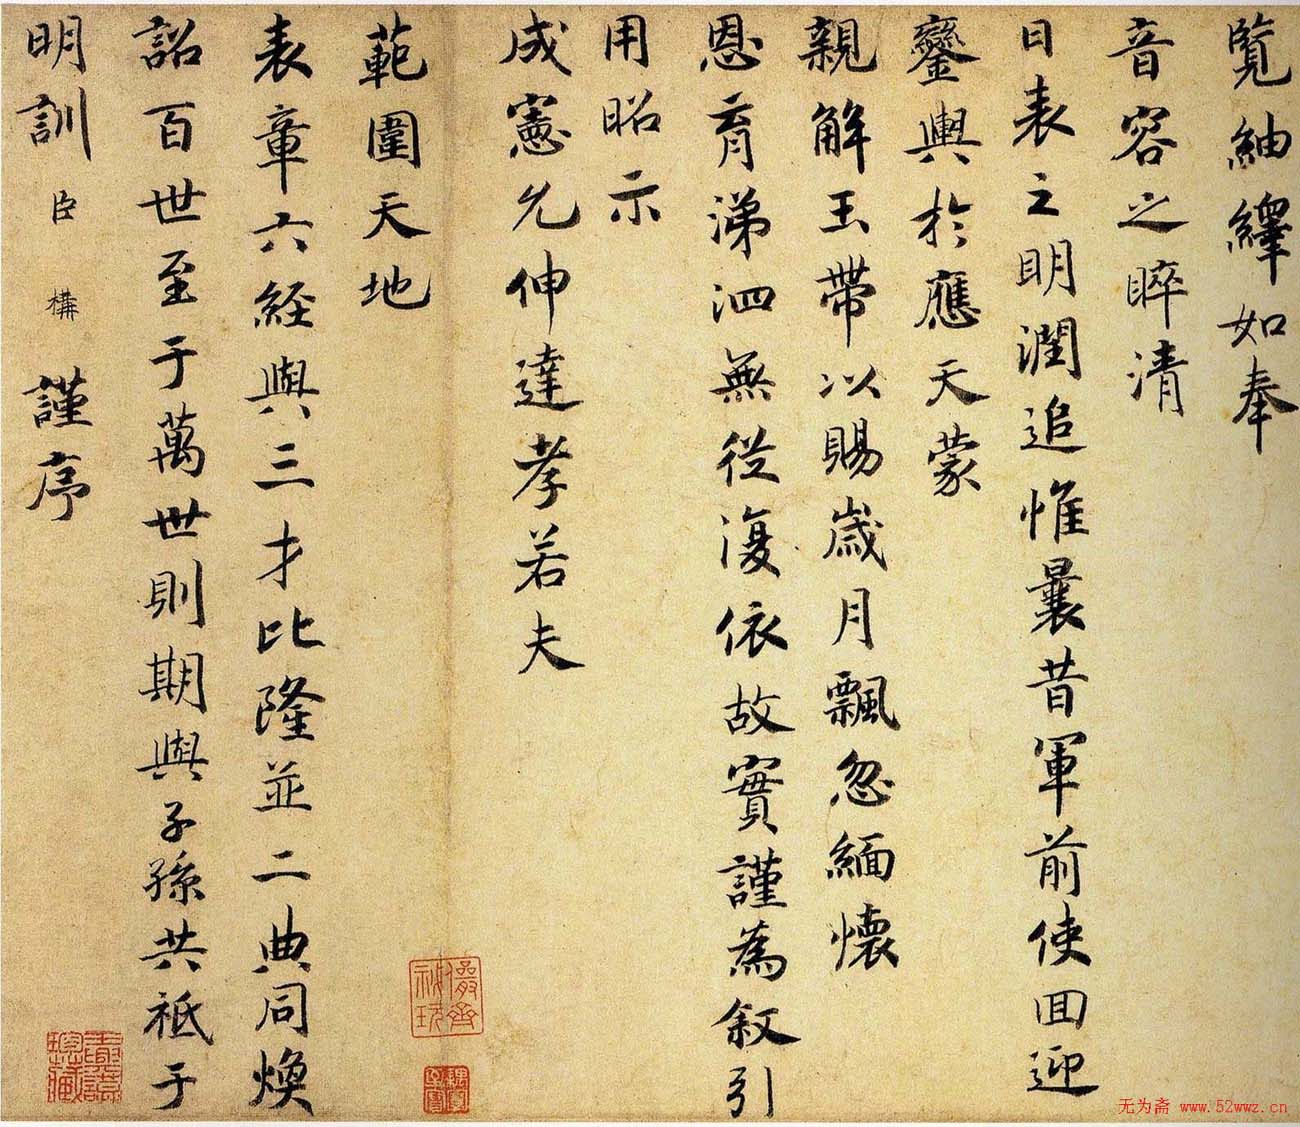 覽紬繹如奉
音容之睟清
日表之明潤追惟曩昔軍前使回迎
鑾輿於應天蒙
親解玉帶以賜歲月飄忽緬懷
恩育涕泗無從復依故實謹為叙引
用昭示
成憲允伸達孝若夫
範圍天地
表章六经與三才比隆並二典同煥
詔百世至于萬世則期與子孫共祗于
明訓臣構謹序
无为斋 www.52wwz.cn